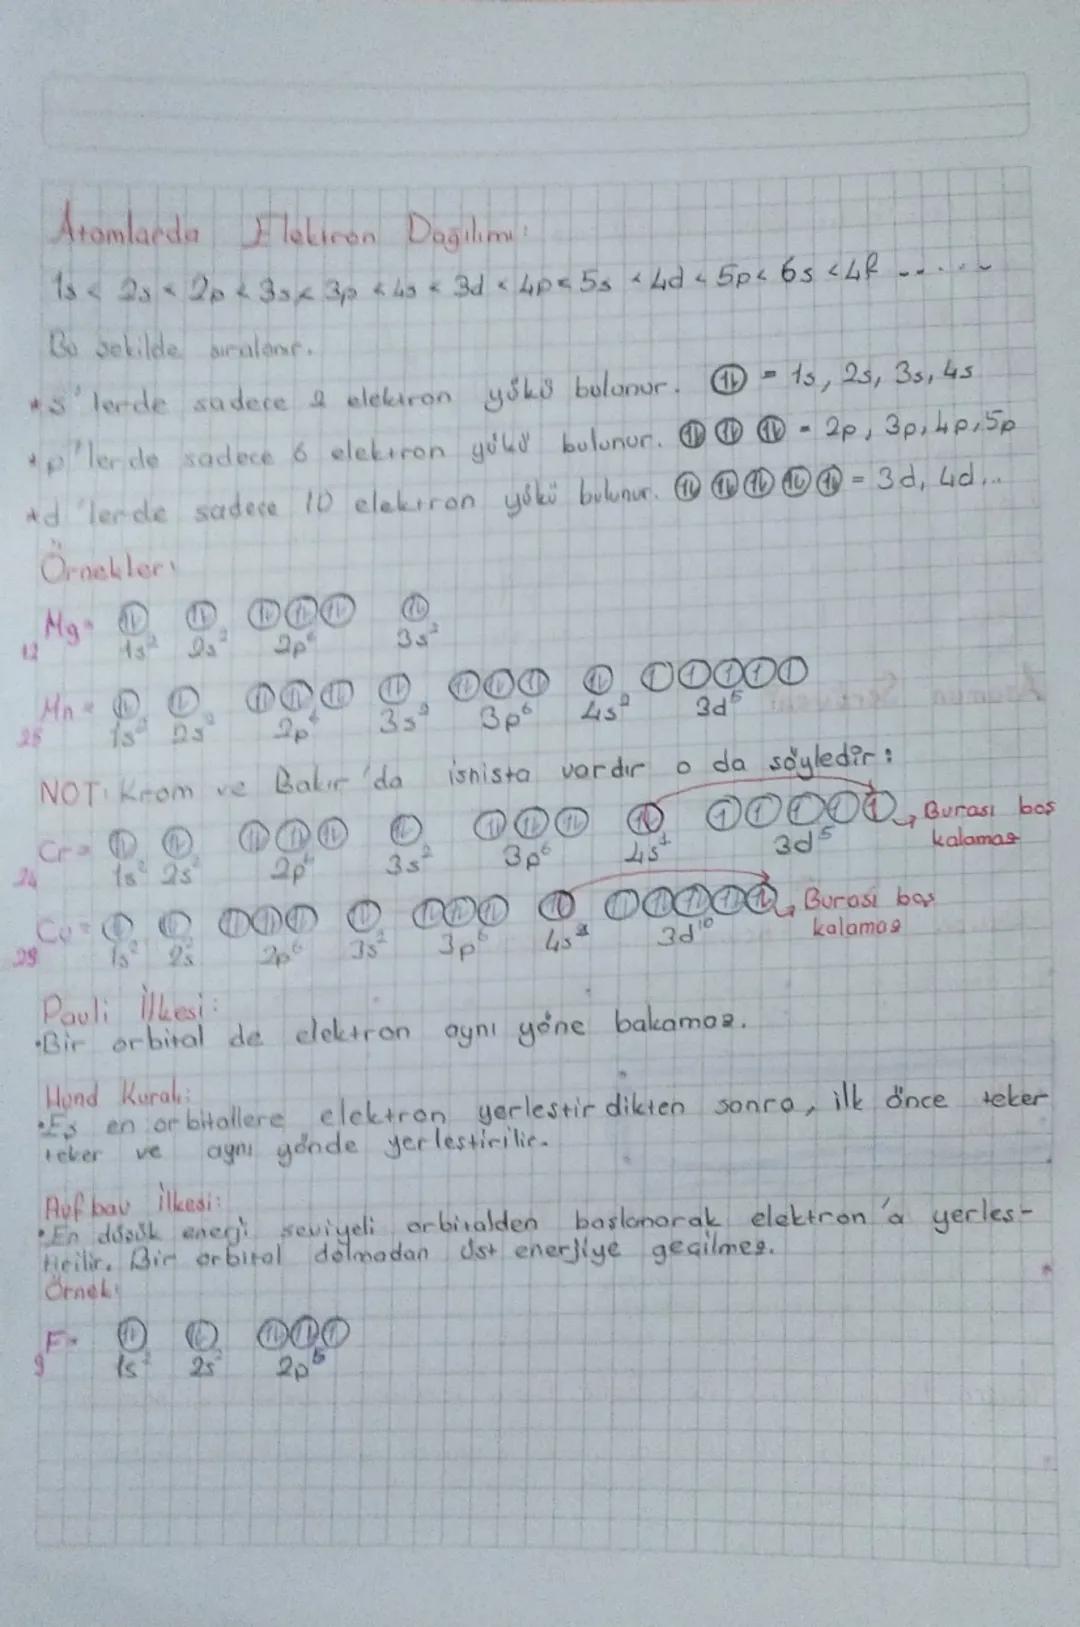 Atomlarda Elektron Dağılımı:
1s < 2s < 2p < 3s < 3p < 4s < 3d < 4p < 5s < 4d < 5p < 6s < 4f ......
Bu şekilde sıralanır.
*s'lerde sadece 2 elektron yükü bulunur. ⑪ = 1s, 2s, 3s, 4s
*p'lerde sadece 6 elektron yükü bulunur. = 2p, 3p, 4p, 5p
*d'lerde sadece 10 elektron yükü bulunur. = 3d, 4d...
Örnekler:
12Mg= 1s² 2s² 2p⁶ 3s²
25Mn= 1s² 2s² 2p⁶ 3s² 3p⁶ 4s² 3d⁵
NOT: Krom ve Bakır'da isnista vardır o da şöyledir:
24Cr= 1s² 2s² 2p⁶ 3s² 3p⁶ 4s¹ 3d⁵ Burası boş kalamaz
29Cu= 1s² 2s² 2p⁶ 3s² 3p⁶ 4s 3d¹⁰ Burası boş kalamaz
Pauli İlkesi:
•Bir orbital de elektron aynı yöne bakamaz.
Hund Kuralı:
•Eş en orbitallere elektron yerleştirdikten sonra, ilk önce teker
teker ve aynı yönde yerleştirilir.
Aufbau İlkesi:
•En düşük enerji seviyeli orbitalden başlanarak elektron'a yerleş-
tirilir. Bir orbital dolmadan üst enerjiye geçilmez.
Örnek:
9F= 1s² 2s² 2p⁵